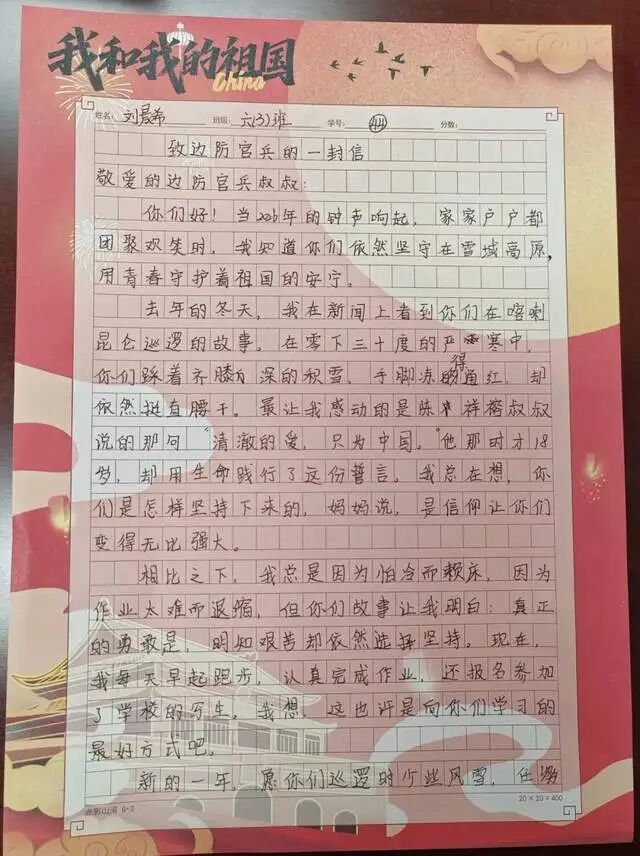 我和我的祖国
China
姓名: 刘晨希 班级: 六(3)班 学号: 44 分数:
致边防官兵的一封信
敬爱的边防官兵叔叔:
你们好!当2026年的钟声响起,家家户户都
团聚欢笑时,我知道你们依然坚守在雪域高原,
用青春守护着祖国的安宁。
去年的冬天,我在新闻上看到你们在喀喇
昆仑巡逻的故事。在零下三十度的严寒中,
你们踩着齐膝深的积雪,手脚冻得通红,却
依然挺直腰干。最让我感动的是陈祥榕叔叔
说的那句“清澈的爱,只为中国。”他那时才18
岁,却用生命践行了这份誓言。我总在想,你
们是怎样坚持下来的,妈妈说,是信仰让你们
变得无比强大。
相比之下,我总是因为怕冷而赖床,因为
作业太难而退缩,但你们故事让我明白:真正
的勇敢是,明知艰苦却依然选择坚持。现在,
我每天早起跑步,认真完成作业,还报名参加
了学校的写生。我想,这也许是向你们学习的
最好方式吧。
新的一年,愿你们巡逻时少些风雪,任务
赤影山河 G-2
20×20=400